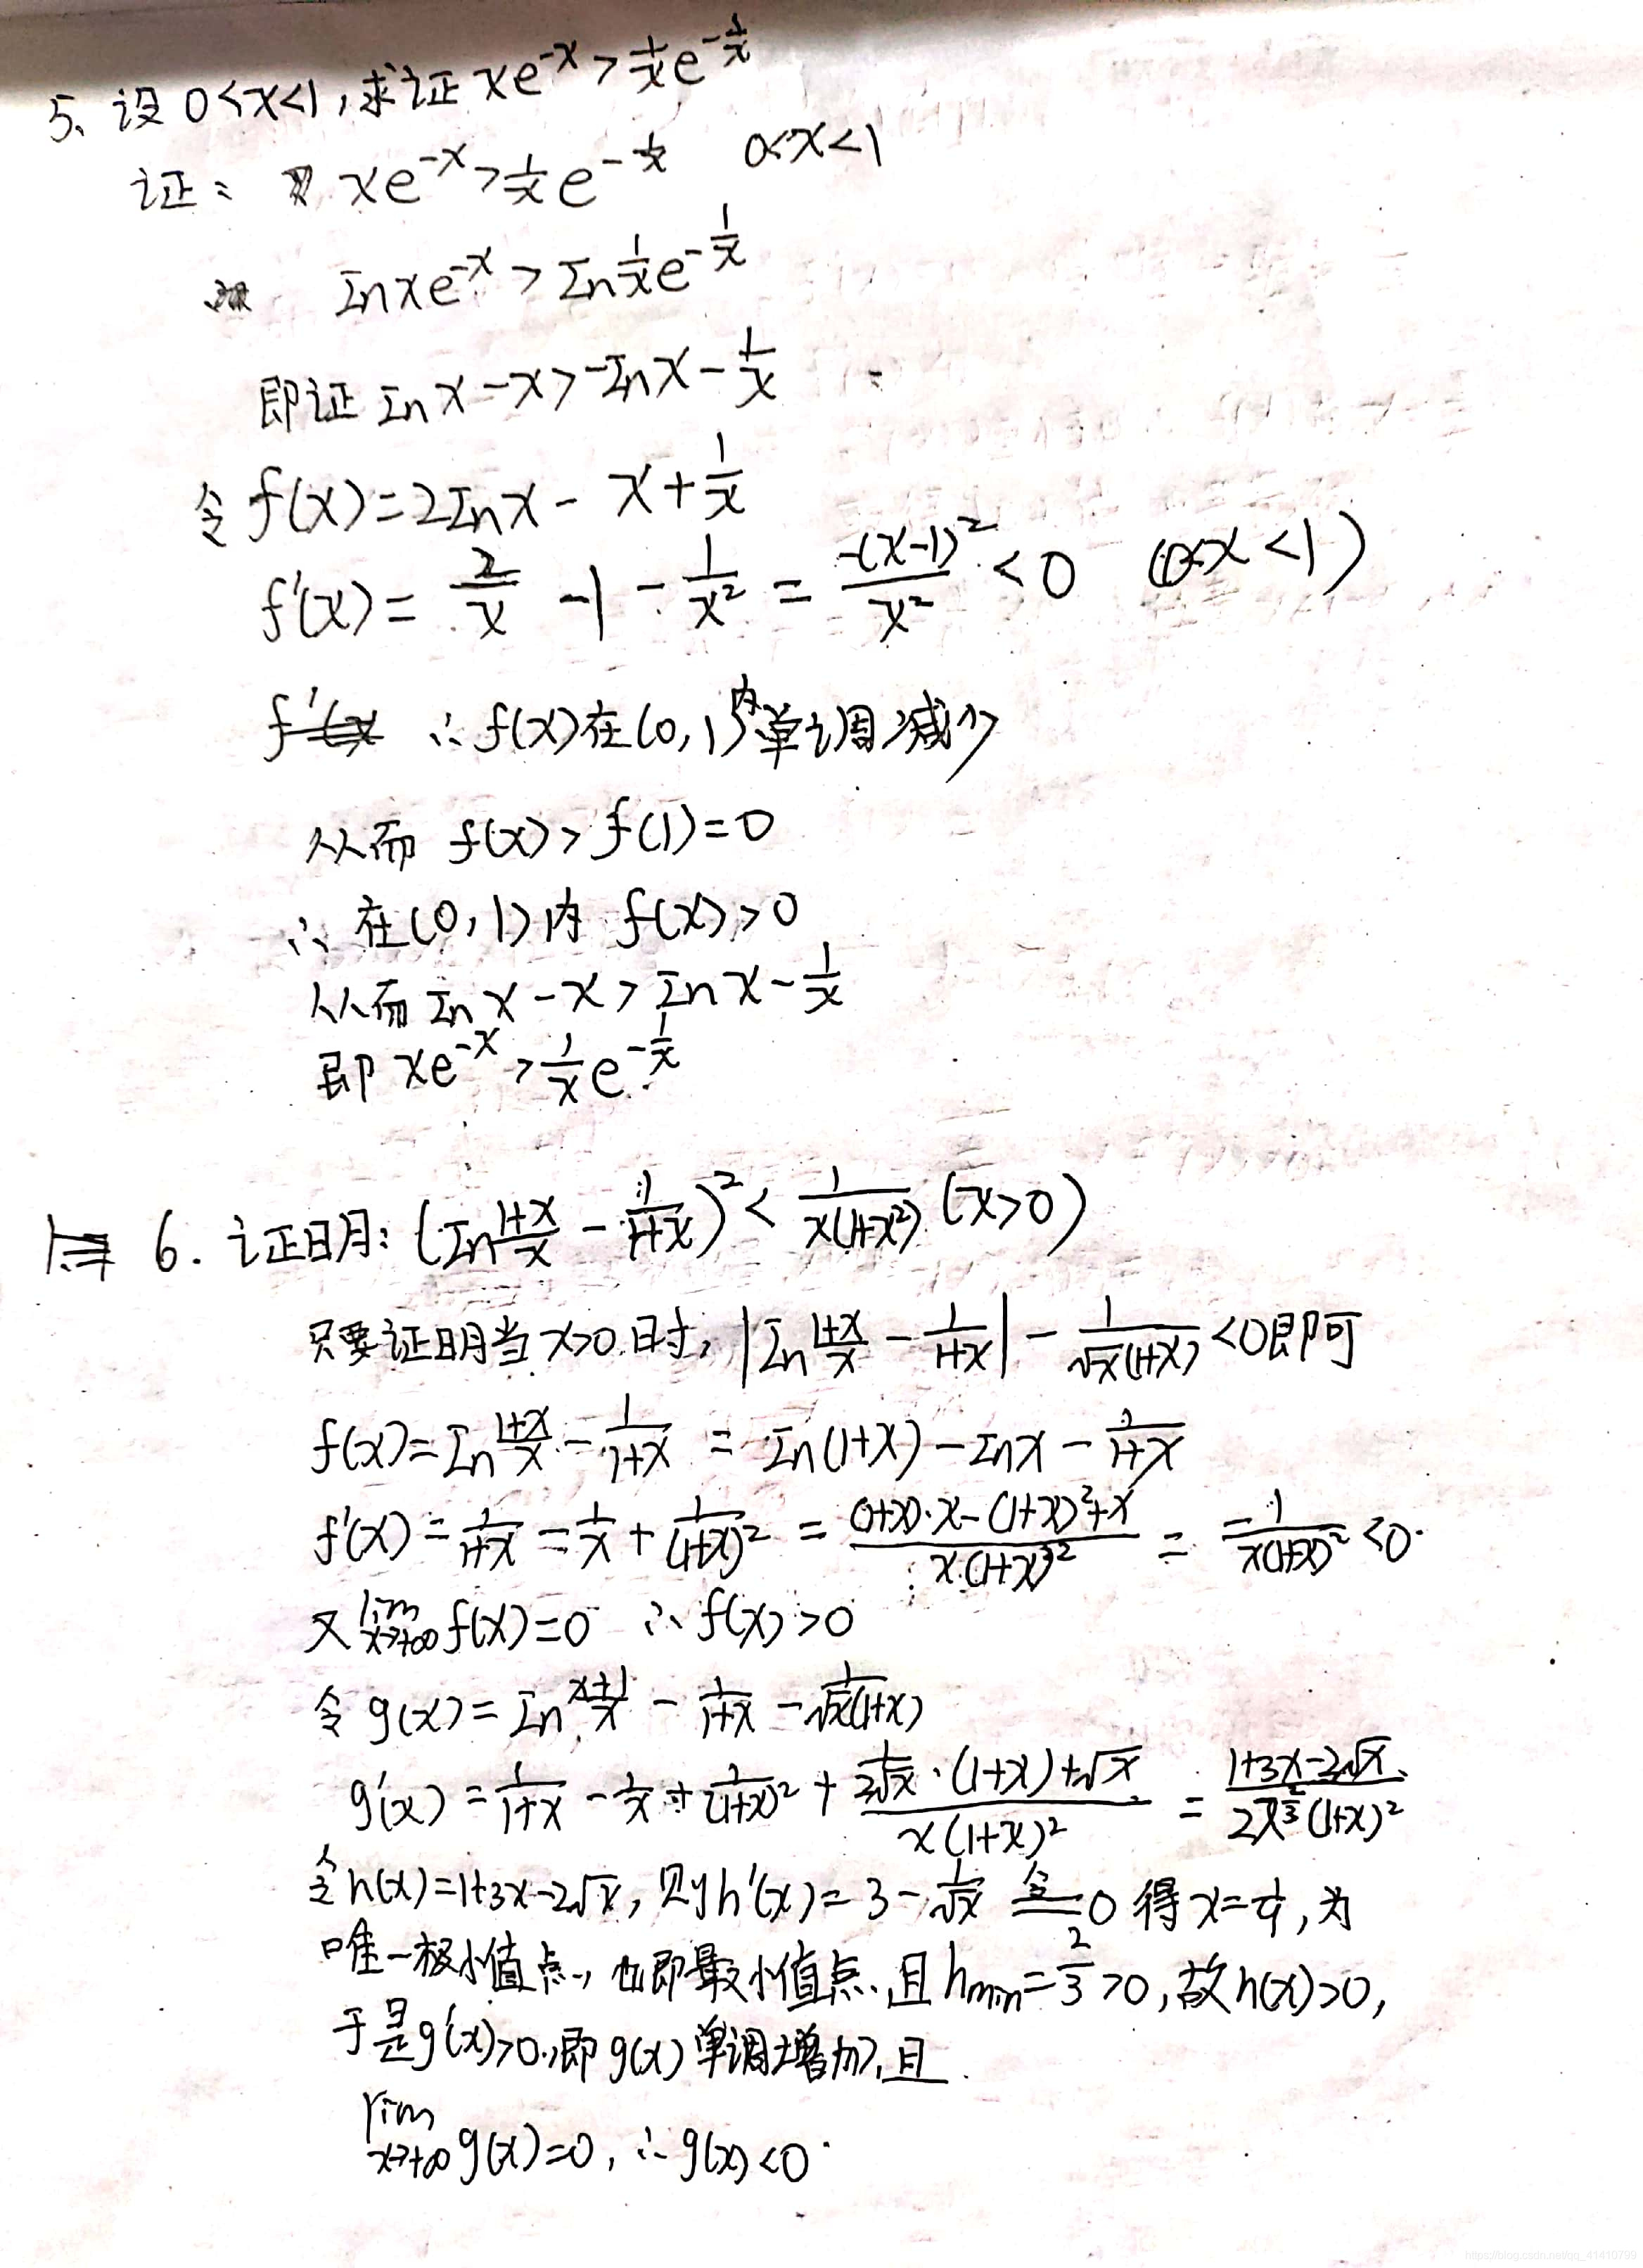 5、设 0<x<1,求证 xe^{-x} > \frac{1}{x}e^{-\frac{1}{x}}
证: xe^{-x} > \frac{1}{x}e^{-\frac{1}{x}} 0<x<1
Inxe^{-x} > In\frac{1}{x}e^{-\frac{1}{x}}
即证 Inx-x > -Inx-\frac{1}{x}
令 f(x)=2Inx-x+\frac{1}{x}
f'(x)=\frac{2}{x}-1-\frac{1}{x^2}=\frac{-(x-1)^2}{x^2}<0 (0<x<1)
∴f(x)在(0,1)内单调减少
从而 f(x)>f(1)=0
∴在(0,1)内 f(x)>0
从而 Inx-x > Inx-\frac{1}{x}
即 xe^{-x} > \frac{1}{x}e^{-\frac{1}{x}}
6. 证明: (In\frac{1+x}{x}-\frac{1}{1+x})^2 < \frac{1}{x(1+x^2)} (x>0)
只要证明当 x>0 时, |In\frac{1+x}{x}-\frac{1}{1+x}|-\frac{1}{\sqrt{x}(1+x)}<0即可
f(x)=In\frac{1+x}{x}-\frac{1}{1+x}=In(1+x)-Inx-\frac{1}{1+x}
f'(x)=\frac{1}{1+x}-\frac{1}{x}+\frac{1}{(1+x)^2}=\frac{(1+x)·x-(1+x)^2+x}{x·(1+x)^2}=\frac{-1}{x(1+x)^2}<0.
又 \lim_{x→+∞}f(x)=0 ∴f(x)>0
令 g(x)=In\frac{x+1}{x}-\frac{1}{1+x}-\frac{1}{\sqrt{x}(1+x)}
g'(x)=\frac{1}{1+x}-\frac{1}{x}+\frac{1}{(1+x)^2}+\frac{\frac{1}{2\sqrt{x}}·(1+x)+\sqrt{x}}{x(1+x)^2}=\frac{1+3x-2\sqrt{x}}{2x^{\frac{2}{3}}(1+x)^2}
令 h(x)=1+3x-2\sqrt{x}, 则h'(x)=3-\frac{1}{\sqrt{x}} 令=0 得 x=\frac{1}{9}, 为
唯一极小值点, 也即最小值点. 且 h_{min}=\frac{2}{3}>0, 故h(x)>0,
于是g'(x)>0, 即 g(x) 单调增加, 且
\lim_{x→+∞}g(x)=0, ∴g(x)<0.
https://blog.csdn.net/qq_41410799